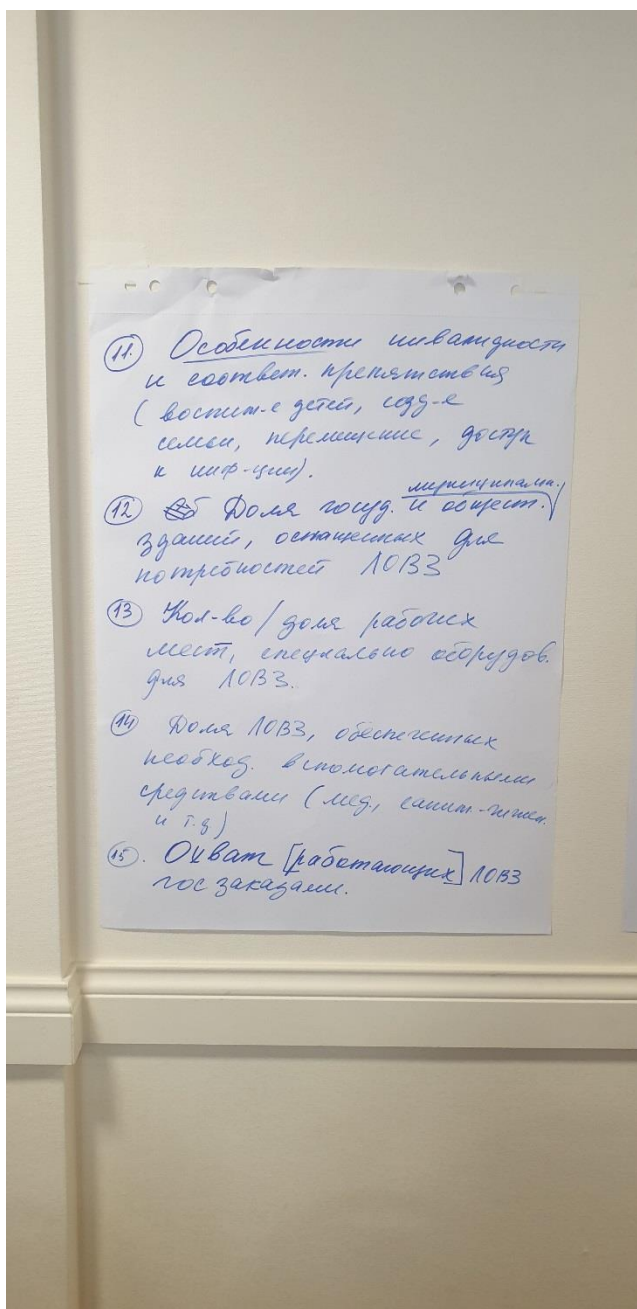 11. Особенности инвалидности
и соответ. препятствия
(воспит-е детей, созд-е
семьи, перемещение, доступ
к инф-ции).
муниципальн.
12 Доля госуд. и общест.
зданий, оснащенных для
потребностей ЛОВЗ
13 Кол-во / доля рабочих
мест, специально оборудов.
для ЛОВЗ.
14 Доля ЛОВЗ, обеспеченных
необход. вспомогательными
средствами (мед., санит.-гигиен.
и т.д)
15. Охват [работающих] ЛОВЗ
гос заказами.